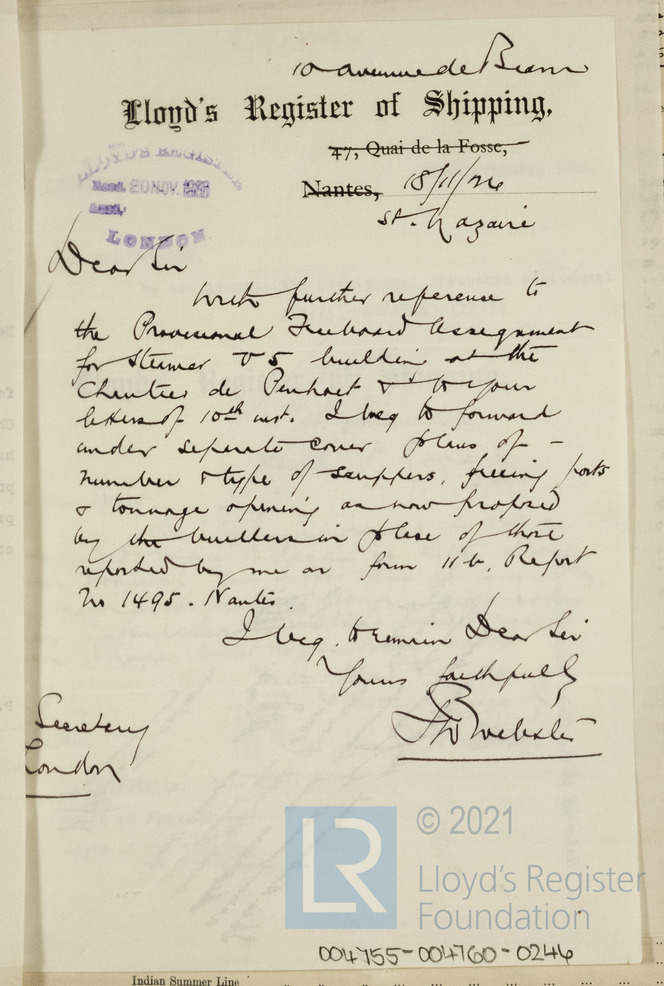 10 avenue de Bearn
Lloyd's Register of Shipping,
47, Quai de la Fosse,
Nantes, 18/11/26
St. Nazaire
LLOYD'S REGISTER
Recd. 20 NOV.
LONDON
Dear Sir
With further reference to
the Provisional Freeboard Assignment
for Steamer V5 building at the
Chantier de Penhoet & to your
letters of 10th inst. I beg to forward
under separate cover plans of -
number & type of scuppers, freeing ports
& tonnage opening as now proposed
by the builders in place of those
reported by me on form 11b, Report
No 1495. Nantes.
I beg to remain Dear Sir
Yours faithfully
Webster
Secretary
London
LR
© 2021
Lloyd's Register
Foundation
004755-004760-0246
Indian Summer Line